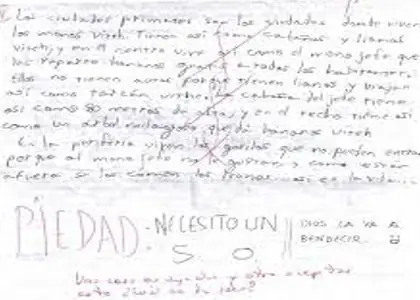 Las ciudades primates son las ciudades donde viven
los monos viteh. Tienen así como cabañas y llamas
viteh y en el centro vive así como el mono jefe que
les reparte bananas gratis a todos los habitantes.
Ellos no tienen autos porque tienen lianas y viajan
así como tarzán viteh. La cabaña del jefe tiene
así como 80 metros de alto, y en el techo tiene así
como un árbol milagroso que da bananas viteh
En la periferia viven los gorilas que no pueden entrar
porque al mono jefe no le gustan, y como están
afuera se los comen los
PIEDAD: NECESITO UN
5 O
DIOS LA VA A
BENDECIR.
Una cosa es ayudar y otra aceptar
esto ¿Cuál es tu idea?